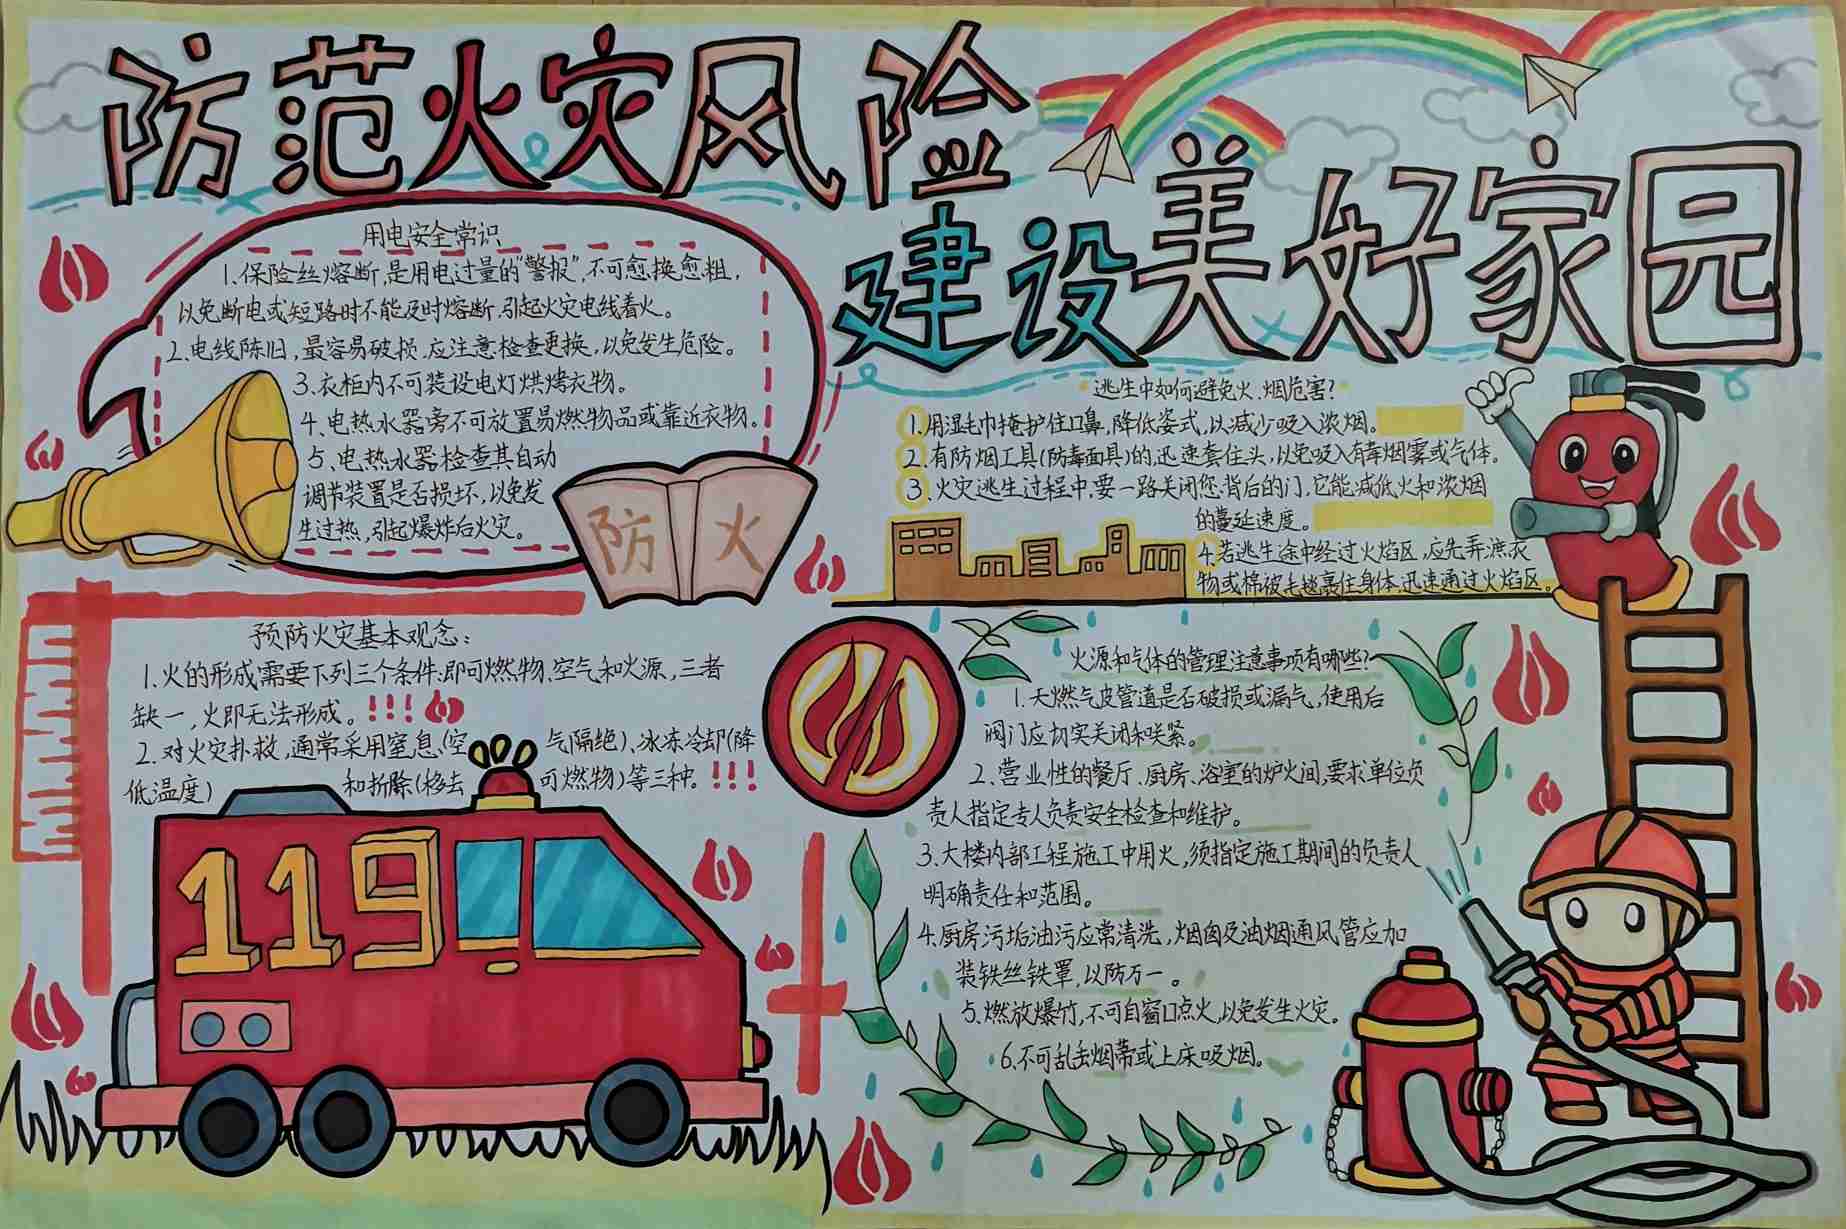 防范火灾风险
建设美好家园
用电安全常识
1.保险丝熔断,是用电过量的“警报”,不可愈换愈粗,
以免断电或短路时不能及时熔断,引起火灾电线着火。
2.电线陈旧,最容易破损,应注意检查更换,以免发生危险。
3.衣柜内不可装设电灯烘烤衣物。
4、电热水器旁不可放置易燃物品或靠近衣物。
5、电热水器,检查其自动
调节装置是否损坏,以免发
生过热,引起爆炸后火灾。
防火
逃生中如何避免火、烟危害?
1.用湿毛巾掩护住口鼻,降低姿式,以减少吸入浓烟。
2.有防烟工具(防毒面具)的,迅速套住头,以免吸入有毒烟雾或气体。
3、火灾逃生过程中,要一路关闭您背后的门,它能减低火和浓烟
的蔓延速度。
4.若逃生途中经过火焰区,应先弄湿衣
物或棉被毛毯裹住身体,迅速通过火焰区。
预防火灾基本观念:
1.火的形成需要下列三个条件:即可燃物、空气和火源,三者
缺一,火即无法形成。!!!
2.对火灾扑救,通常采用窒息(空气隔绝)、冰冻冷却(降
低温度)和折除(移去可燃物)等三种。!!!
119
火源和气体的管理注意事项有哪些?
1.天燃气皮管道是否破损或漏气,使用后
阀门应切实关闭和
2、营业性的餐厅、厨房、浴室的炉火间,要求单位负
责人指定专人负责安全检查和维护。
3、大楼内部工程施工中用火,须指定施工期间的负责人
明确责任和范围。
4.厨房污垢油污应常清洗,烟囱及油烟通风管应加
装铁丝铁罩,以防万一。
5、燃放爆竹,不可自窗口点火,以免发生火灾。
6、不可乱丢烟蒂或上床吸烟。